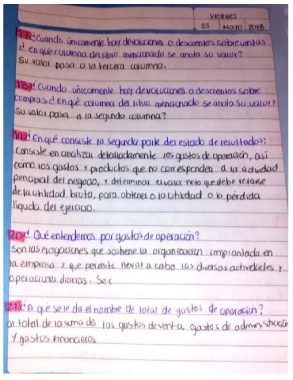 VIERNES
25 Mayo 2018
17.- ¿Cuando únicamente hay devoluciones o descuentos sobre ventas
d en que columna del libro se anota su valor?
Su valor pasa a la tercera columna.
18.- ¿Cuando únicamente hay devoluciones o descuentos sobre
compras ¿En qué columna del libro se anota su valor?
Su valor pasa a la segunda columna?
19.- ¿En qué consiste la segunda parte del estado de resultados?
Consiste en analizar detalladamente los gastos de operación, así
como los gastos y productos que no corresponden a la actividad
principal del negocio, y determinar el valor neto que debe restarse
de la utilidad bruta, para obtener o la utilidad o la pérdida
líquida del ejercicio.
20.- ¿Qué entendemos por gastos de operación?
Son las erogaciones que sostiene la organización implantada en
la empresa y que permite llevar a cabo las diversas actividades y
operaciones diarias. Sec
21.- ¿A qué se le da el nombre de total de gastos de operación?
a total de la suma de los gastos de venta, gastos de administración
y gastos financieros